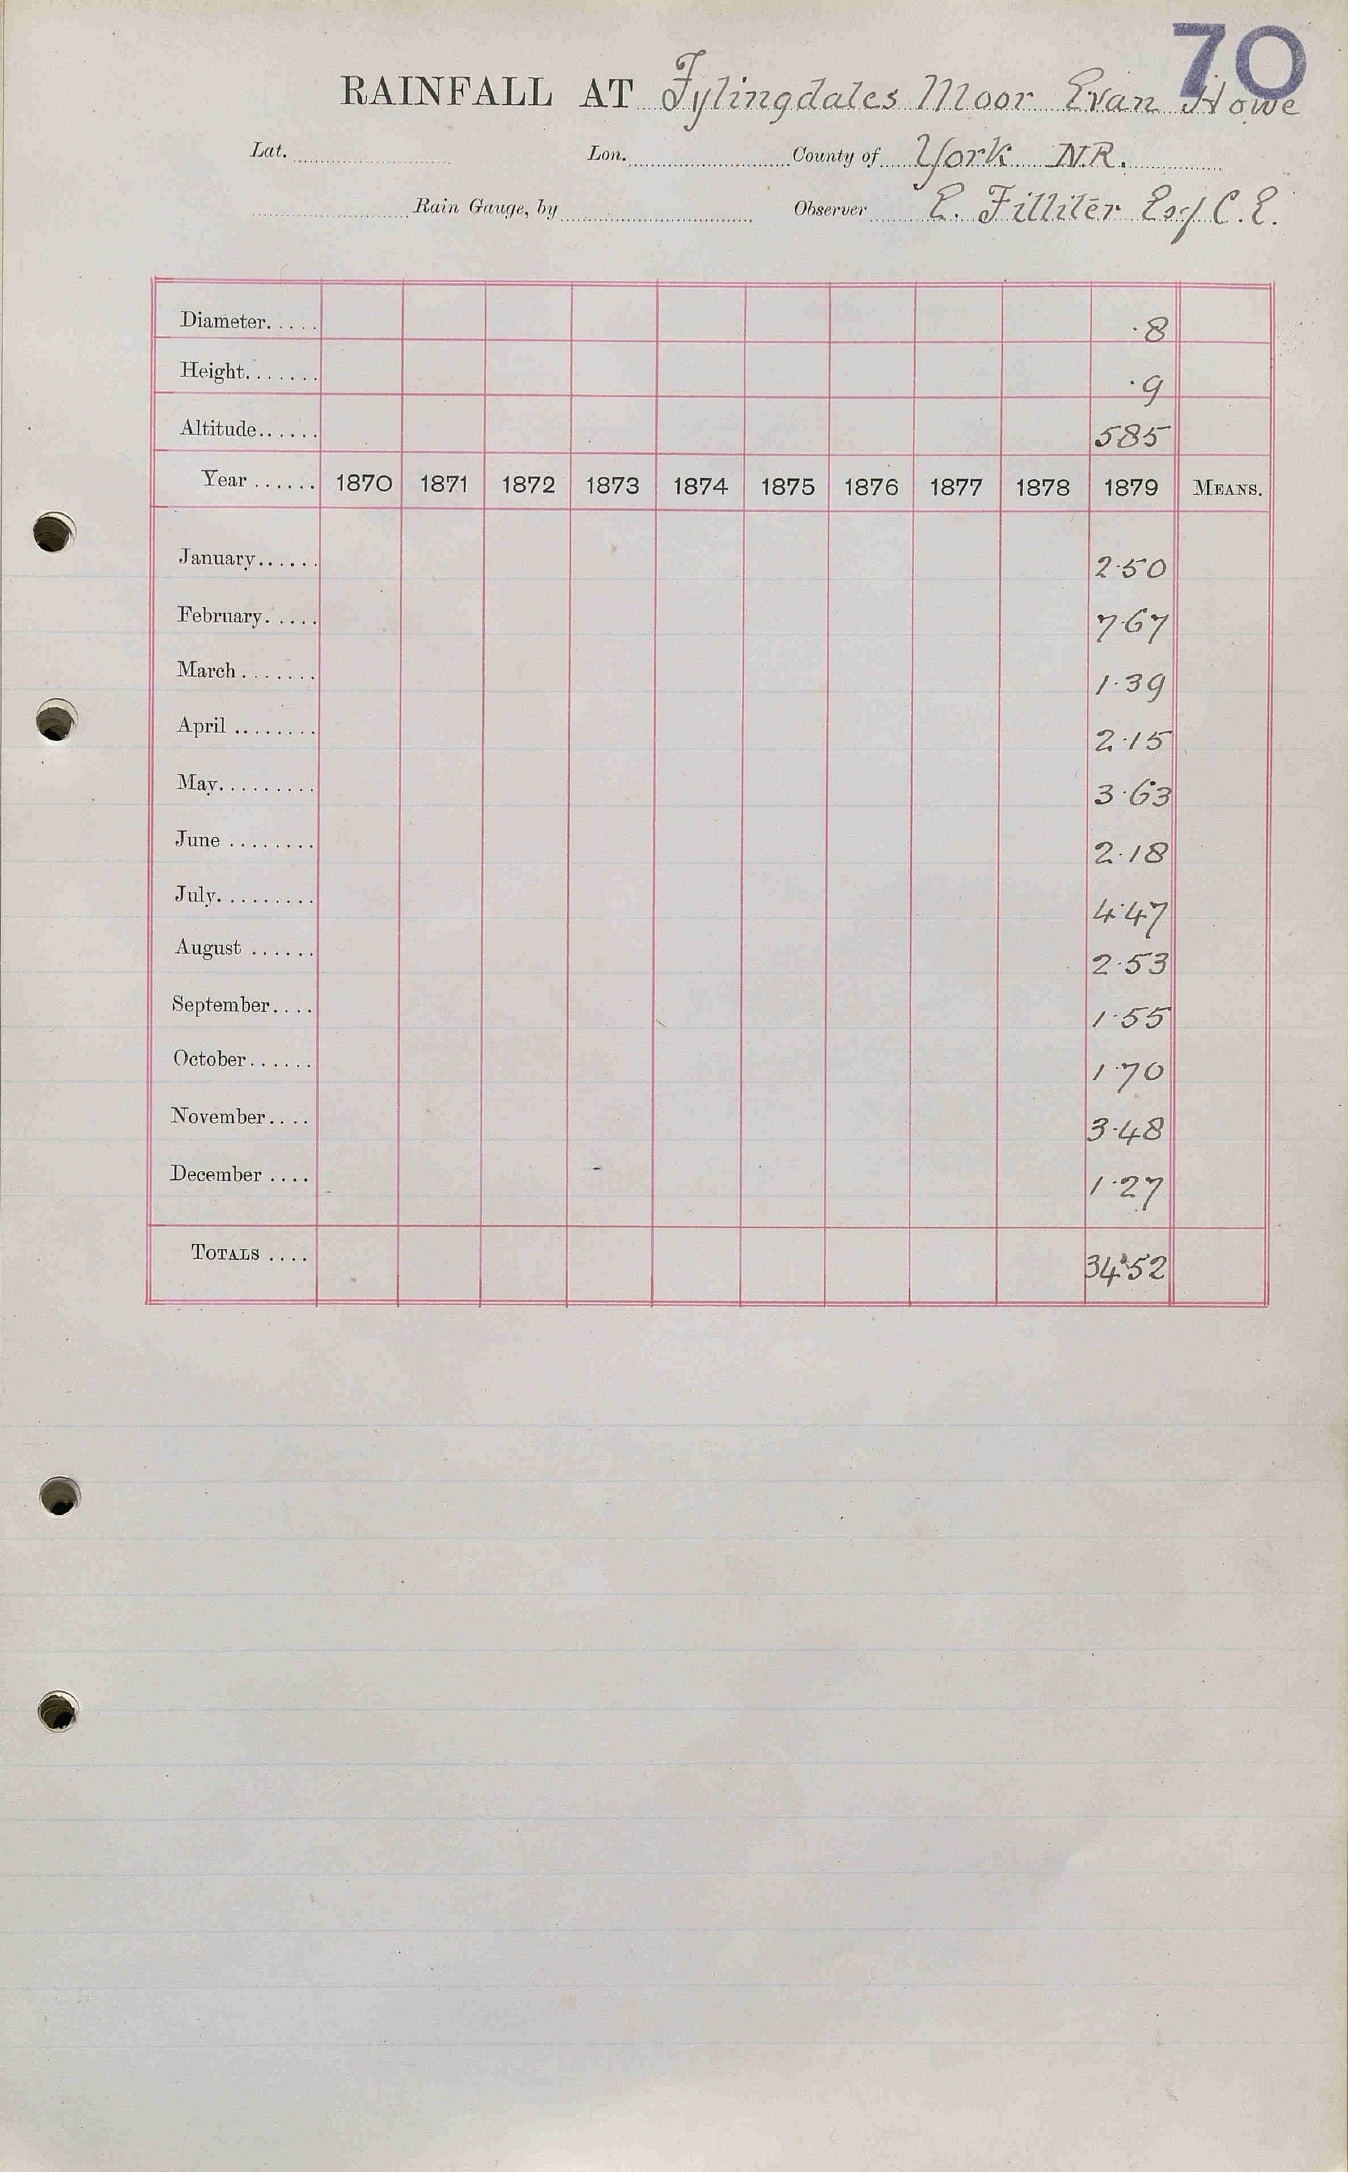 70
RAINFALL AT Fylingdales Moor Evan Howe
Lat. Lon. County of York N.R.
Rain Gauge, by Observer E. Filliter Esq C.E.
Diameter..... ·8
Height....... ·9
Altitude...... 585
Year ...... 1870 1871 1872 1873 1874 1875 1876 1877 1878 1879 MEANS.
January...... 2·50
February..... 7·67
March....... 1·39
April ........ 2·15
May......... 3·63
June ........ 2·18
July......... 4·47
August ...... 2·53
September.... 1·55
October...... 1·70
November.... 3·48
December .... 1·27
TOTALS .... 34·52